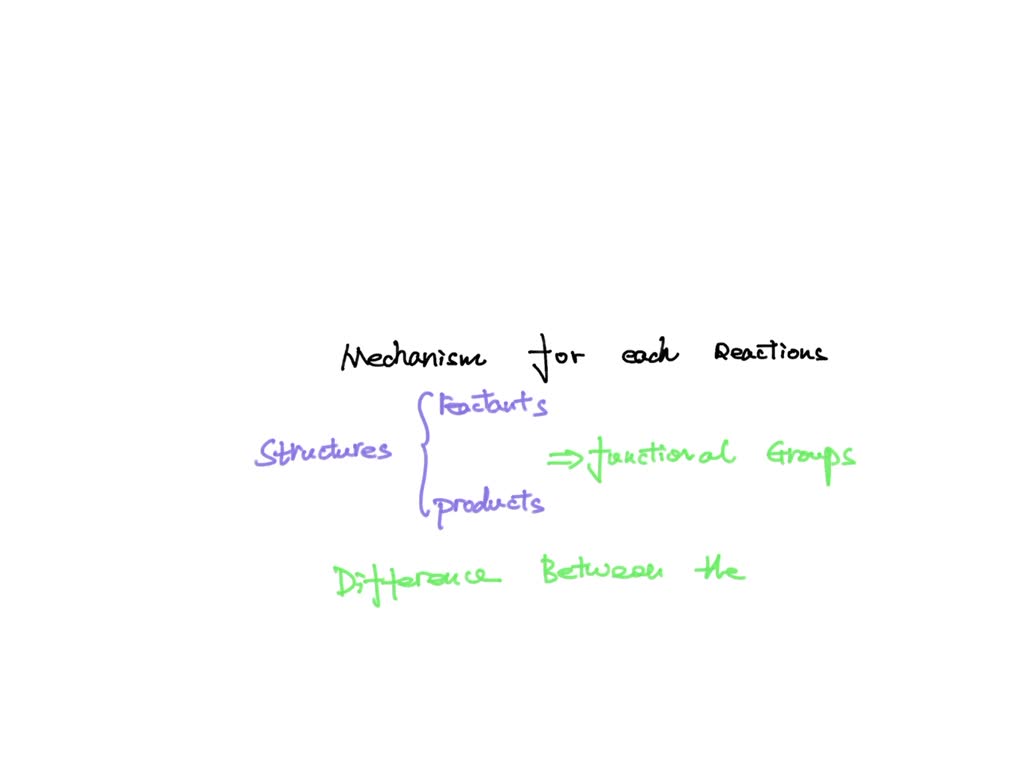 Mechanism for each Reactions
reactants
Structures
⇒ functional Groups
products
Difference Between the